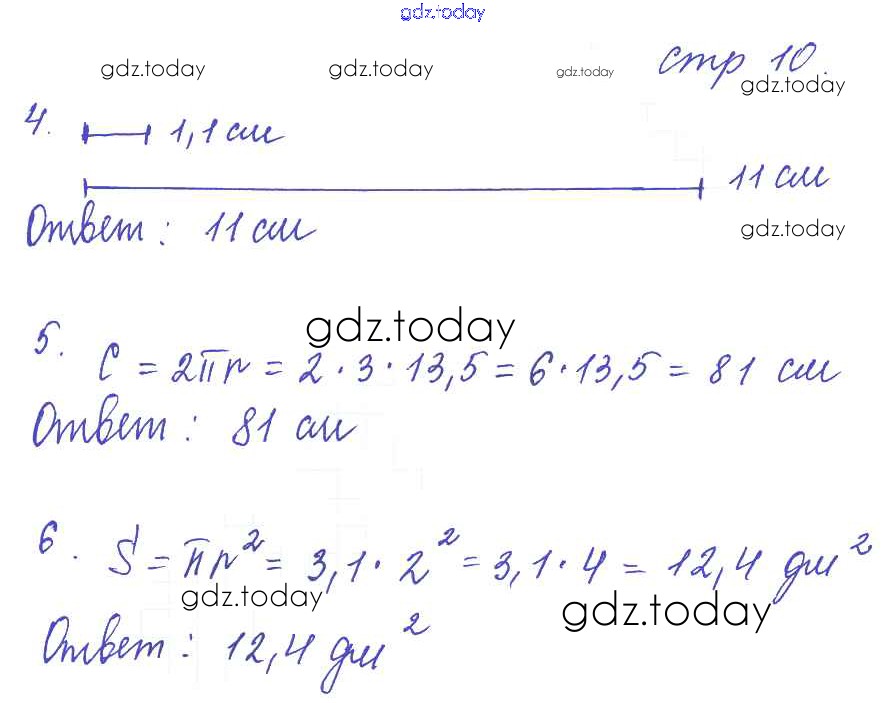 gdz.today
стр 10.
gdz.today gdz.today gdz.today gdz.today
4. 1,1 см
11 см
Ответ: 11 см
gdz.today
gdz.today
5. C = 2πr = 2 · 3 · 13,5 = 6 · 13,5 = 81 см
Ответ: 81 см
6. S = πr² = 3,1 · 2² = 3,1 · 4 = 12,4 дм²
gdz.today gdz.today
Ответ: 12,4 дм²